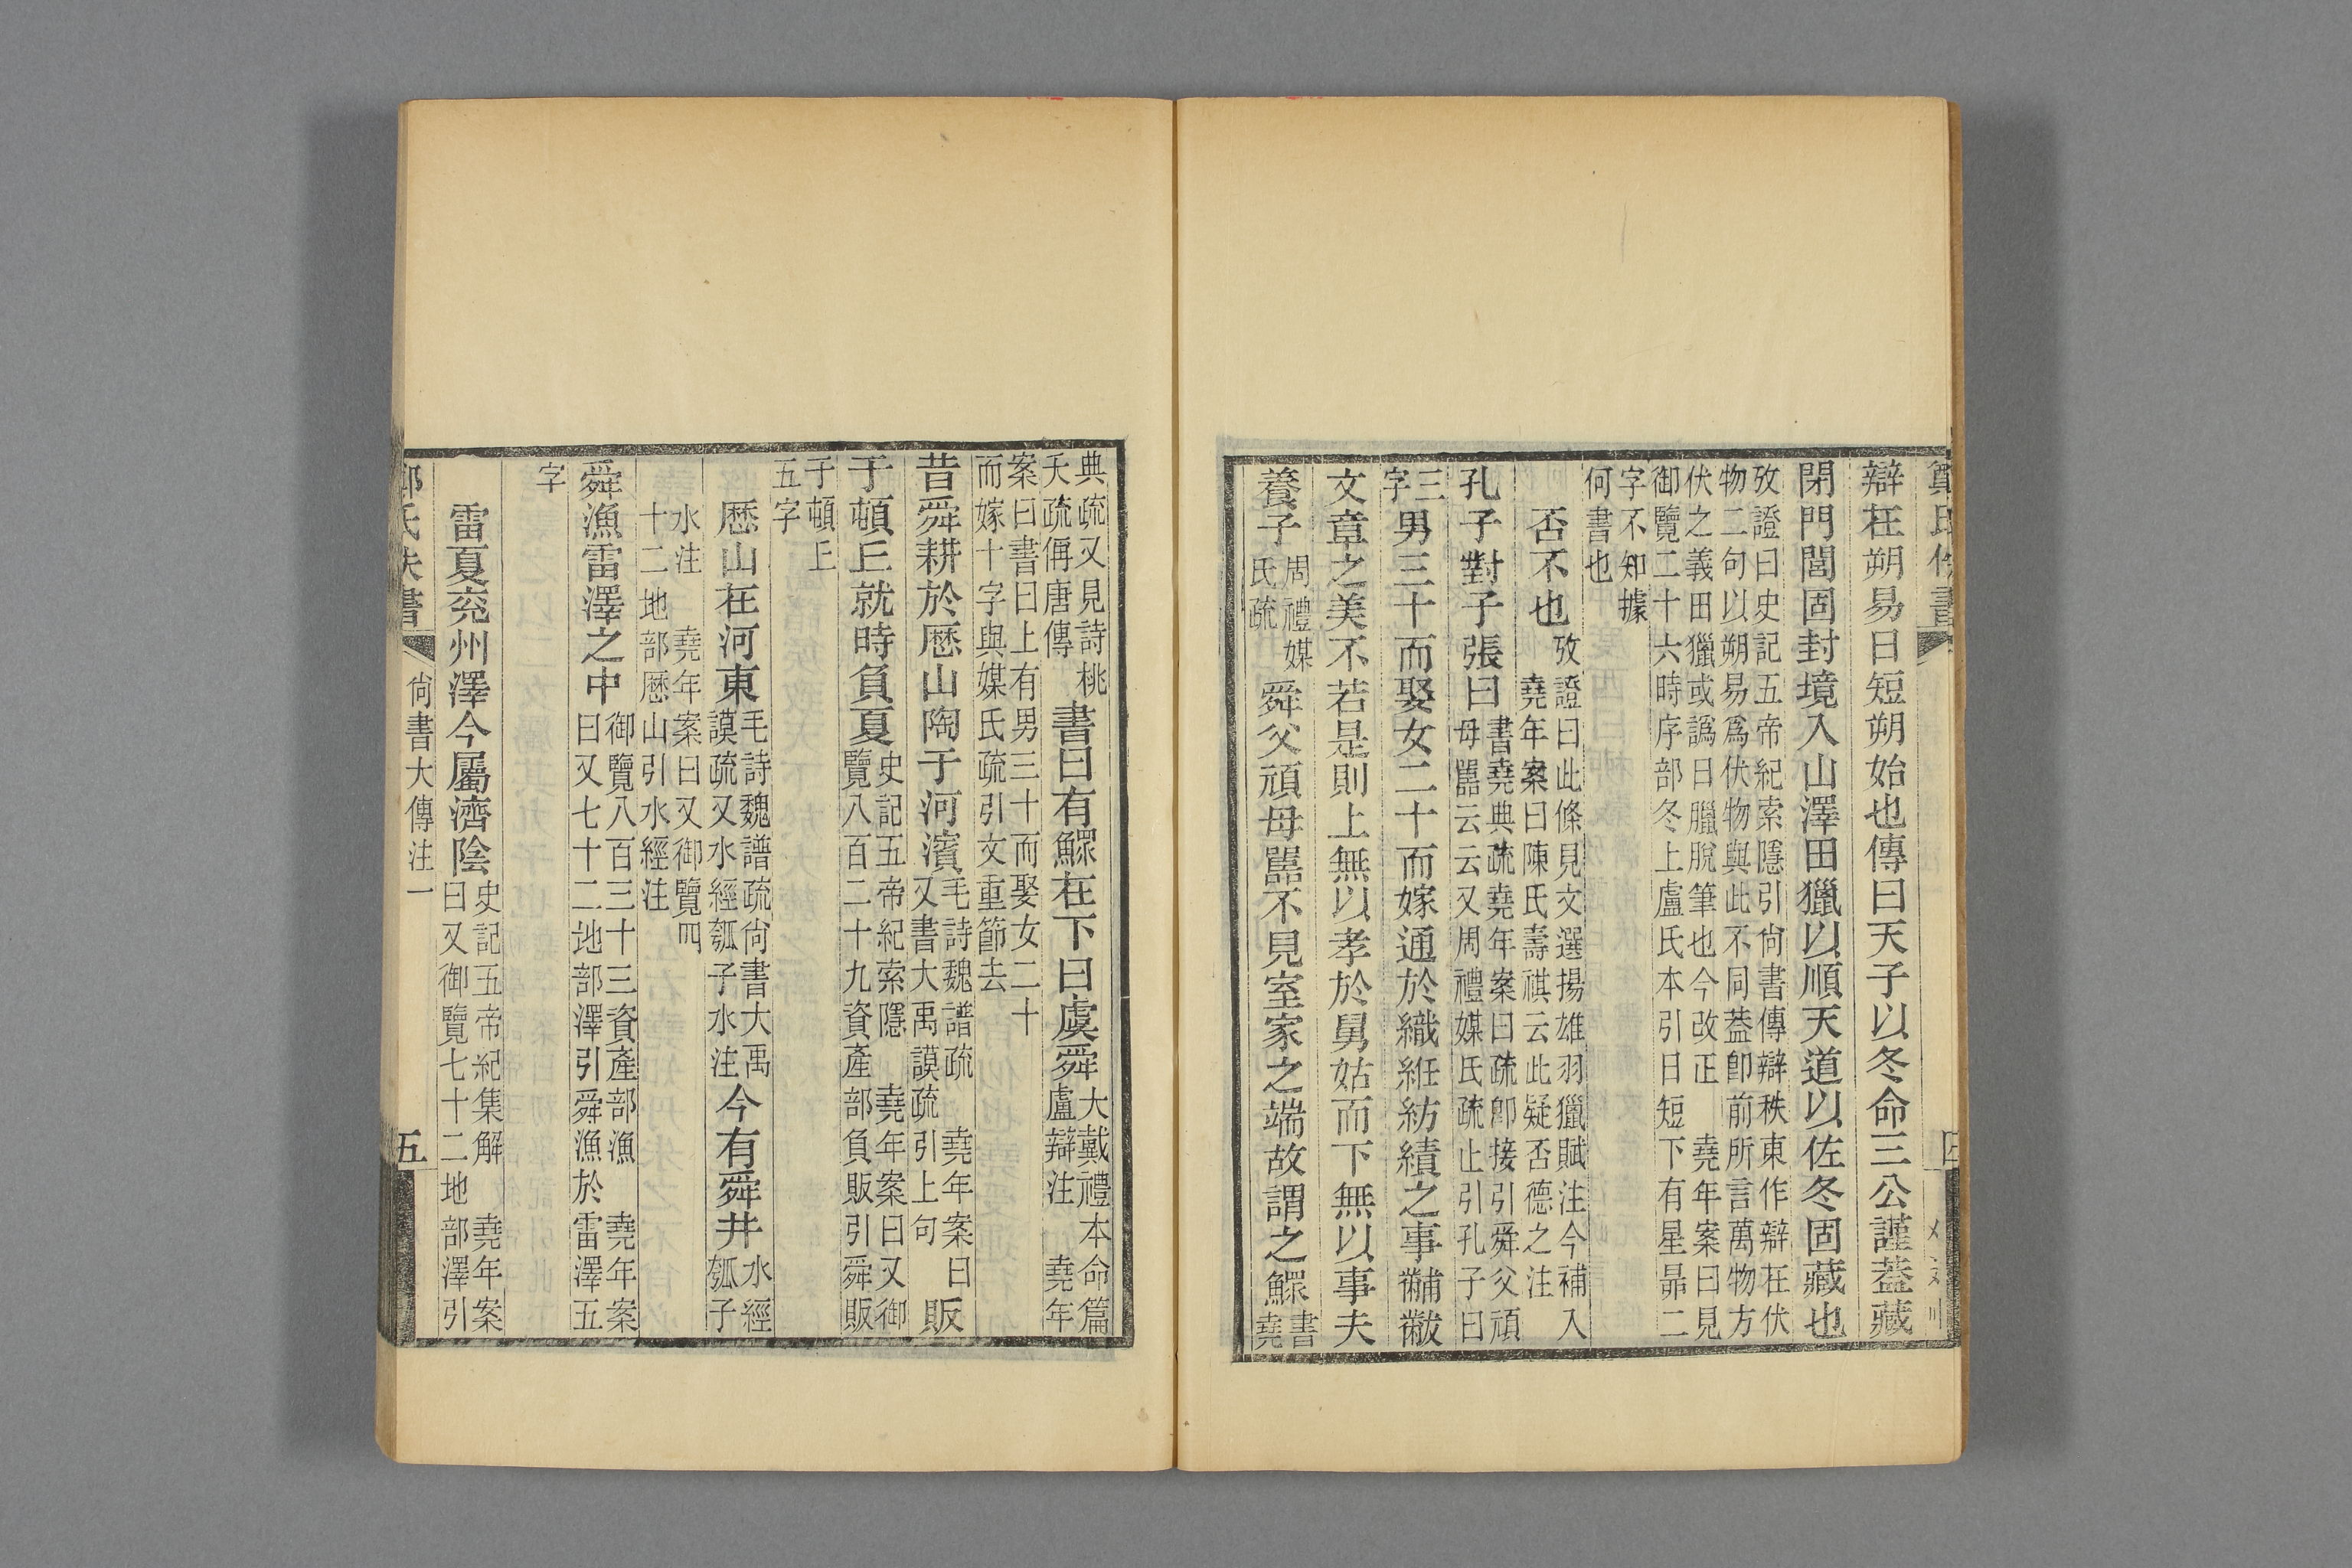 辯在朔易日短朔始也傳曰天子以冬命三公謹蓋藏
閉門閭固封境入山澤田獵以順天道以佐冬固藏也
攷證曰史記五帝紀索隱引尙書傳辯秩東作辯在伏
物二句以朔易爲伏物與此不同葢卽前所言萬物方
伏之義田獵或譌日臘脫筆也今改正 堯年案曰見
御覽二十六時序部冬上盧氏本引日短下有星昴二
字不知據
何書也
否不也
攷證曰此條見文選揚雄羽獵賦注今補入
堯年案曰陳氏壽祺云此疑否德之注
孔子對子張曰
書堯典疏堯年案曰疏卽接引舜父頑
母嚚云云又周禮媒氏疏止引孔子曰
三
字
男三十而娶女二十而嫁通於織紝紡績之事黼黻
文章之美不若是則上無以孝於舅姑而下無以事夫
養子
周禮媒
氏疏
舜父頑母嚚不見室家之端故謂之鰥
書
堯
典疏又見詩桃
夭疏偁唐傳
書曰有鰥在下曰虞舜
大戴禮本命篇
盧辯注 堯年
案曰書曰上有男三十而娶女二十
而嫁十字與媒氏疏引文重節去
昔舜耕於歷山陶于河濱
毛詩魏譜疏 堯年案曰
又書大禹謨疏引上句
販
于頓丘就時負夏
史記五帝紀索隱 堯年案曰又御
覽八百二十九資產部負販引舜販
于頓丘
五字
歷山在河東
毛詩魏譜疏尙書大禹
謨疏又水經瓠子水注
今有舜井
水經
瓠子
水注 堯年案曰又御覽四
十二地部歷山引水經注
舜漁雷澤之中
御覽八百三十三資產部漁 堯年案
曰又七十二地部澤引舜漁於雷澤五
字
雷夏兗州澤今屬濟陰
史記五帝紀集解 堯年案
曰又御覽七十二地部澤引
氏佚書
尙書大傳注一
五